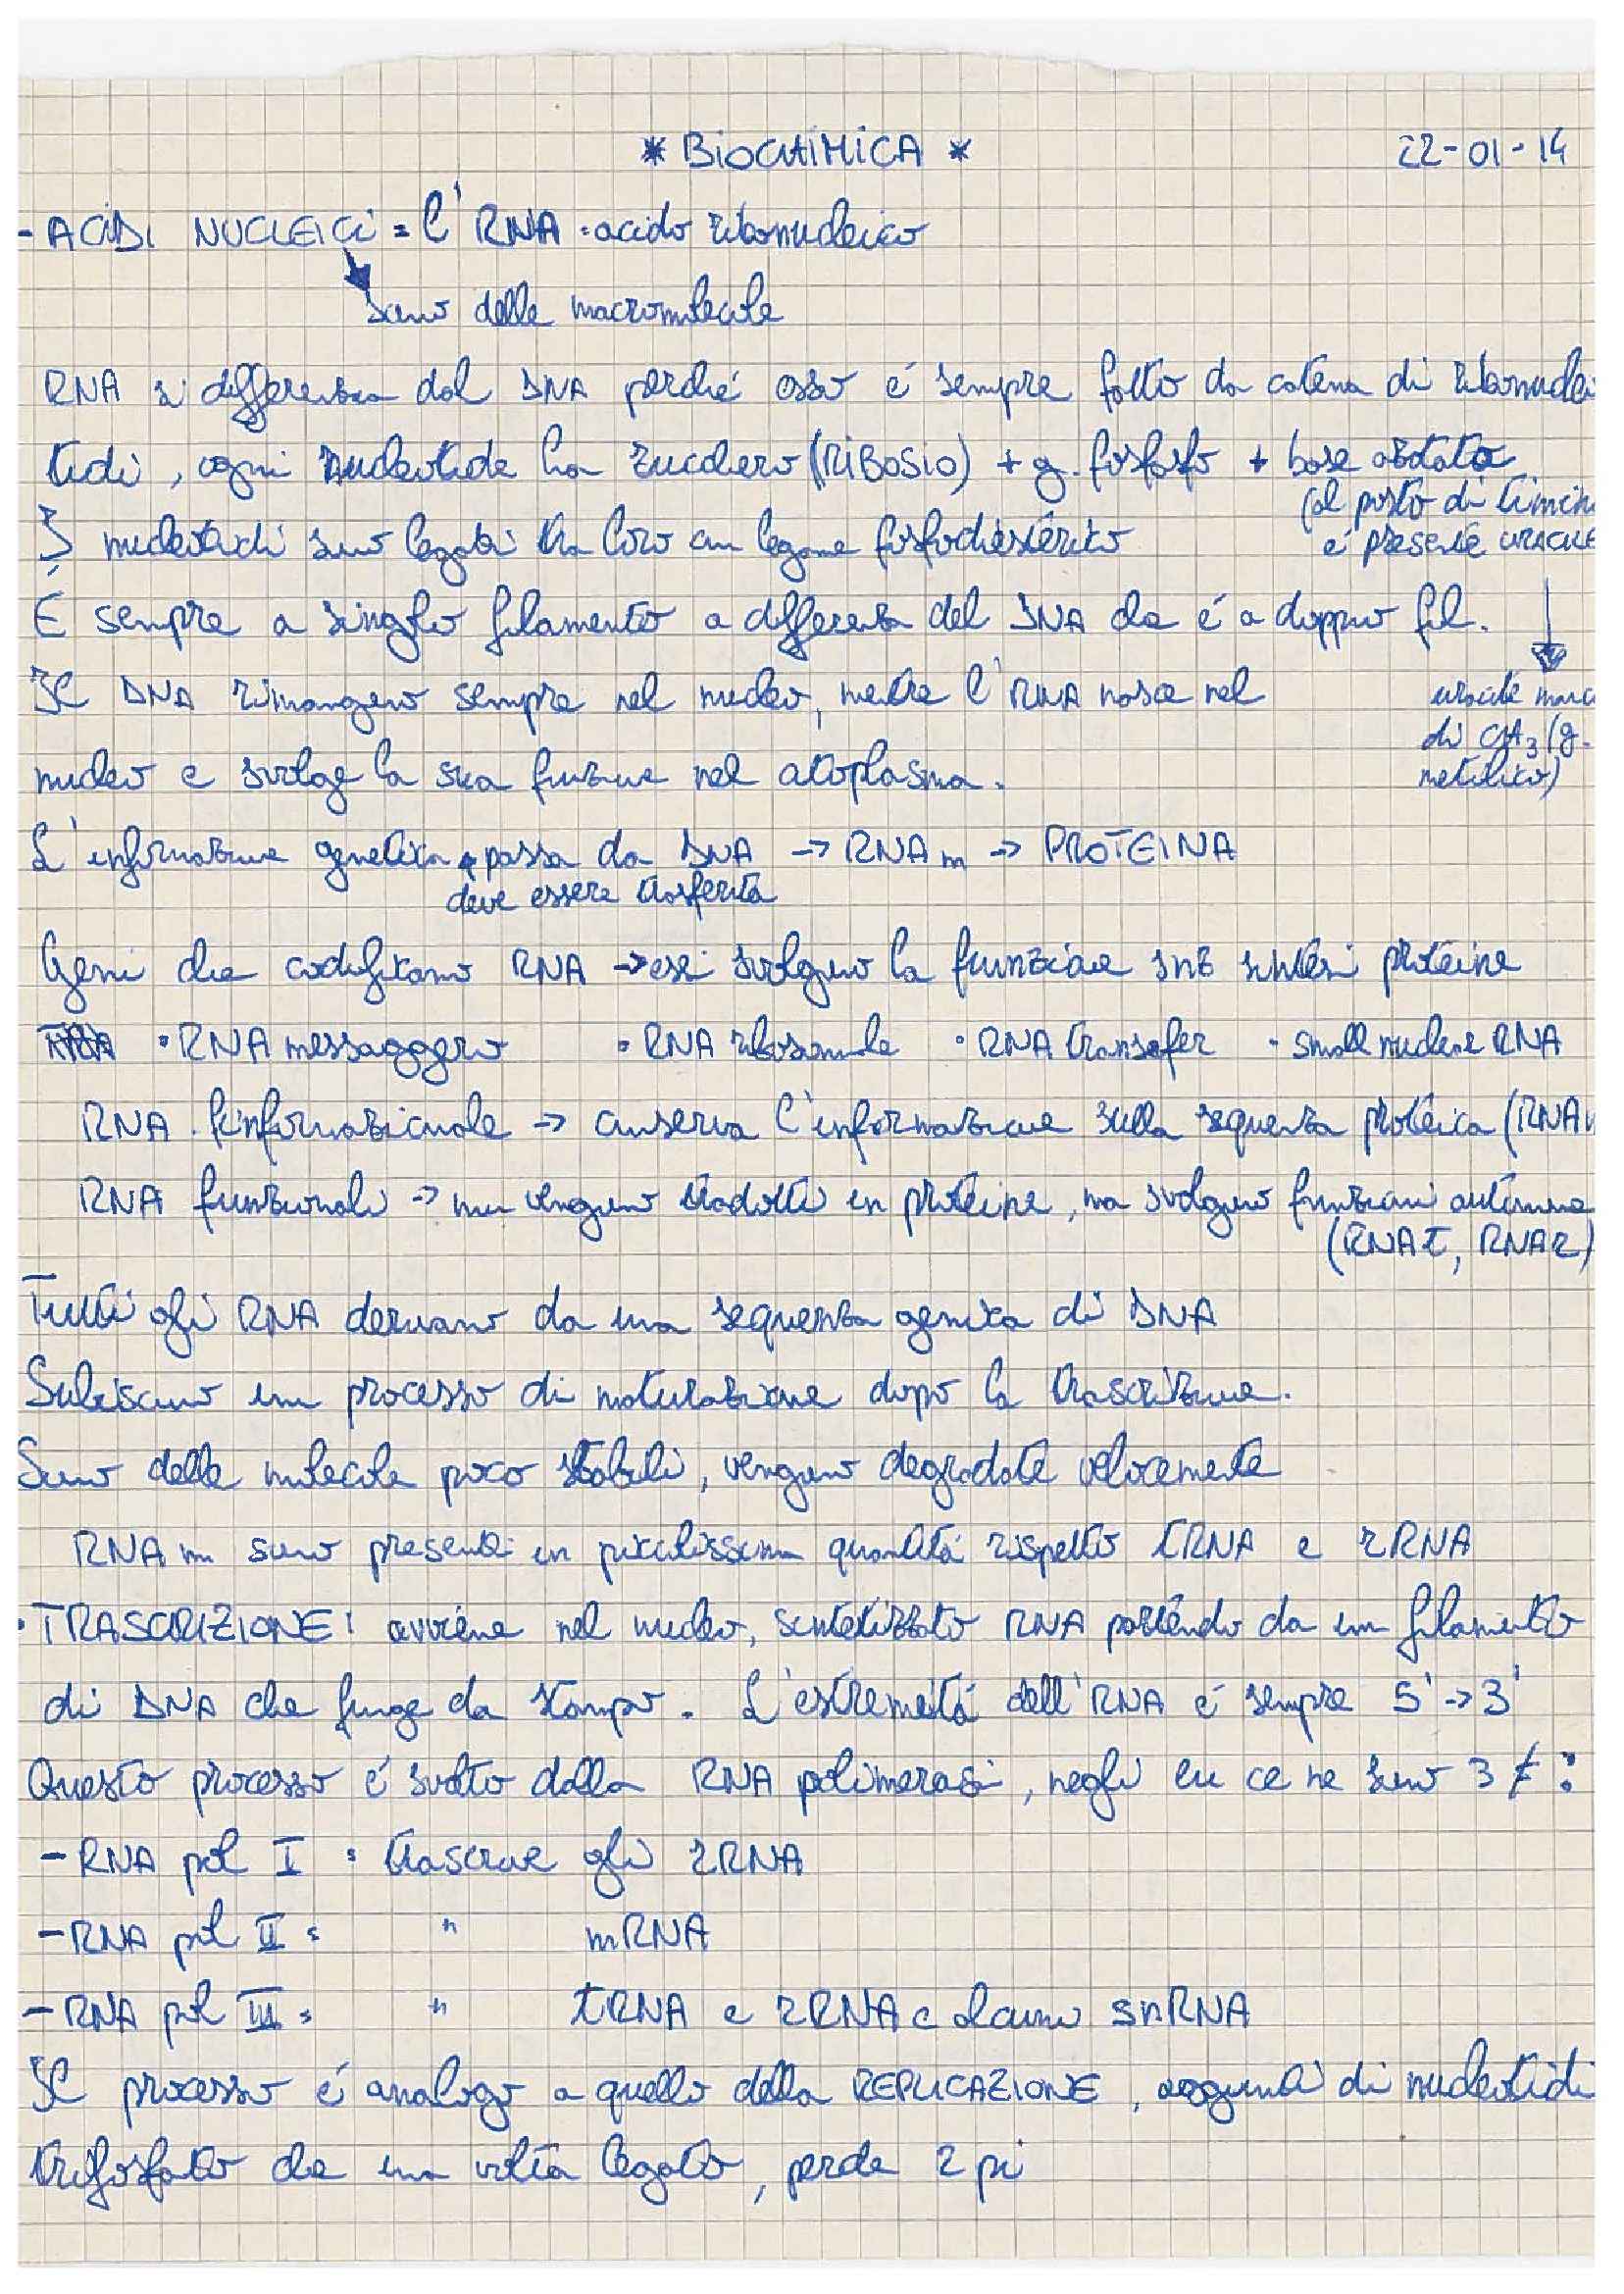 * BIOCHIMICA * 22-01-14
- ACIDI NUCLEICI = l'RNA = acido ribonucleico
sono delle macromolecole
RNA si differenzia dal DNA perché esso é sempre fatto da catena di ribonucleo
tidi, ogni nucleotide ha zucchero (RIBOSIO) + g. fosfato + base azotata
(al posto di timin
I nucleotidi sono legati tra loro con legame fosfodiesterico
é presente URACILE
É sempre a singolo filamento a differenza del DNA che é a doppio fil.
Il DNA rimangono sempre nel nucleo, mentre l'RNA nasce nel
uracile manca
di CH3 (g.
metilico)
nucleo e svolge la sua funzione nel citoplasma.
L'informazione genetica passa da DNA -> RNA m -> PROTEINA
deve essere trasferita
Geni che codificano RNA -> essi svolgono la funzione sintesi proteine
• RNA messaggero • RNA ribosomale • RNA transfer • small nuclear RNA
RNA informazionale -> conserva l'informazione sulla sequenza proteica (RNAm
RNA funzionali -> non vengono tradotti in proteine, ma svolgono funzioni autonome
(RNAt, RNAr)
Tutti gli RNA derivano da una sequenza genica di DNA
Subiscono un processo di maturazione dopo la trascrizione.
Sono delle molecole poco stabili, vengono degradate velocemente
RNA m sono presenti in piccolissima quantitá rispetto tRNA e rRNA
• TRASCRIZIONE: avviene nel nucleo, sintetizzato RNA partendo da un filamento
di DNA che funge da stampo. L'estremitá dell'RNA é sempre 5' -> 3'
Questo processo é svolto dalla RNA polimerasi, negli eu ce ne sono 3 ≠ :
- RNA pol I : trascrive gli rRNA
- RNA pol II : " mRNA
- RNA pol III : " tRNA e rRNA e alcuni snRNA
Il processo é analogo a quello della REPLICAZIONE, aggiunta di nucleotidi
trifosfato che una volta legato, perde 2 pi